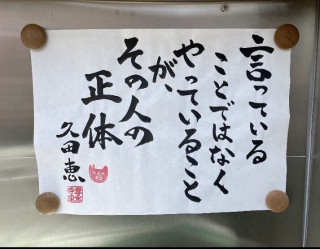 言っている
ことではなく
やっていること
が、
その人の
正体
久田恵